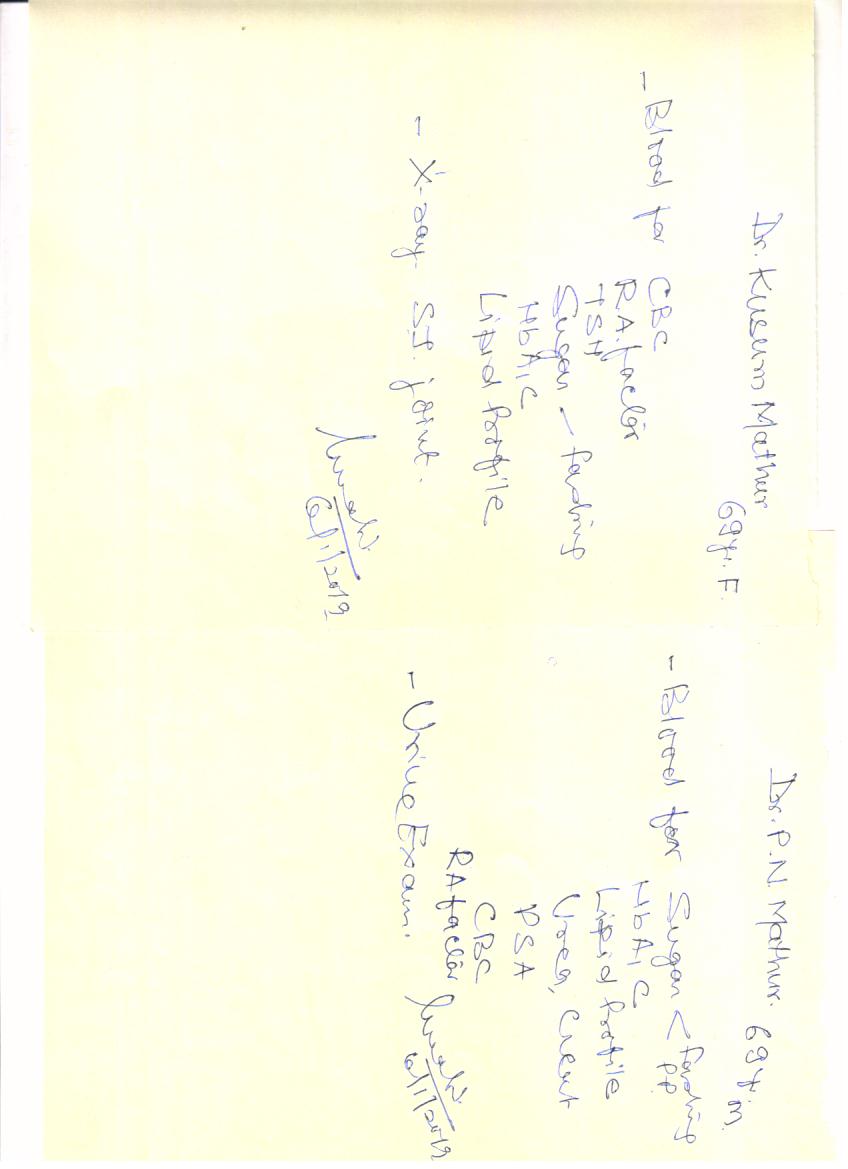 Dr. Kusum Mathur
69 yr. F.
- Blood for CBC
R.A. factor
TSH
Sugar - fasting
HbA1C
Lipid Profile
- X-ray S.I. joint.
6/1/2019
Dr. P.N. Mathur. 69 yr. m.
- Blood for Sugar < fasting
PP.
HbA1C
Lipid Profile
Urea, Creat
PSA
CBC
RA factor
- Urine Exam.
6/1/2019